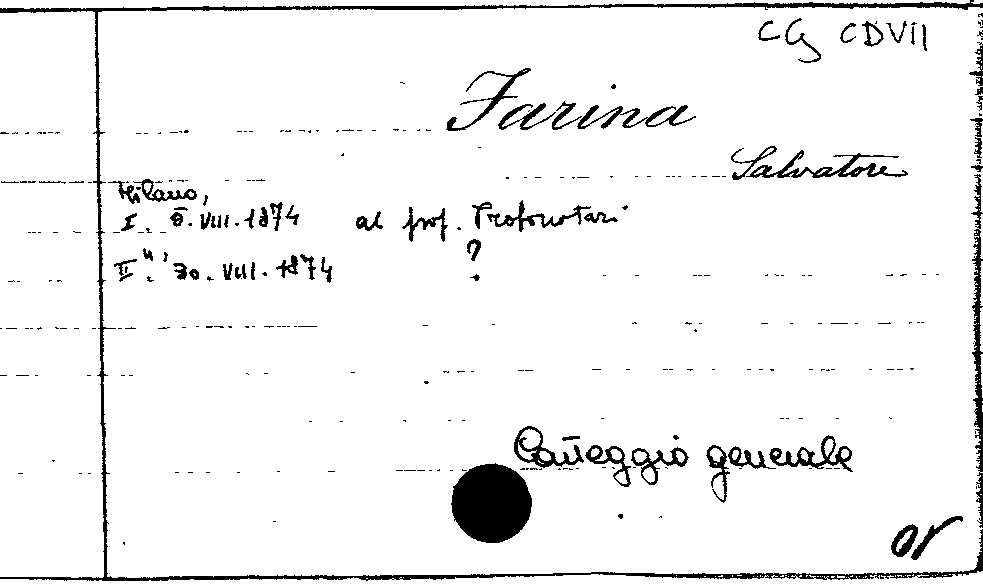 CG CDVII
Farina
Salvatore
Milano,
I. 8. VIII. 1874 al prof. Trofonotari
II. " , 30. VIII. 1874 ?
Carteggio generale